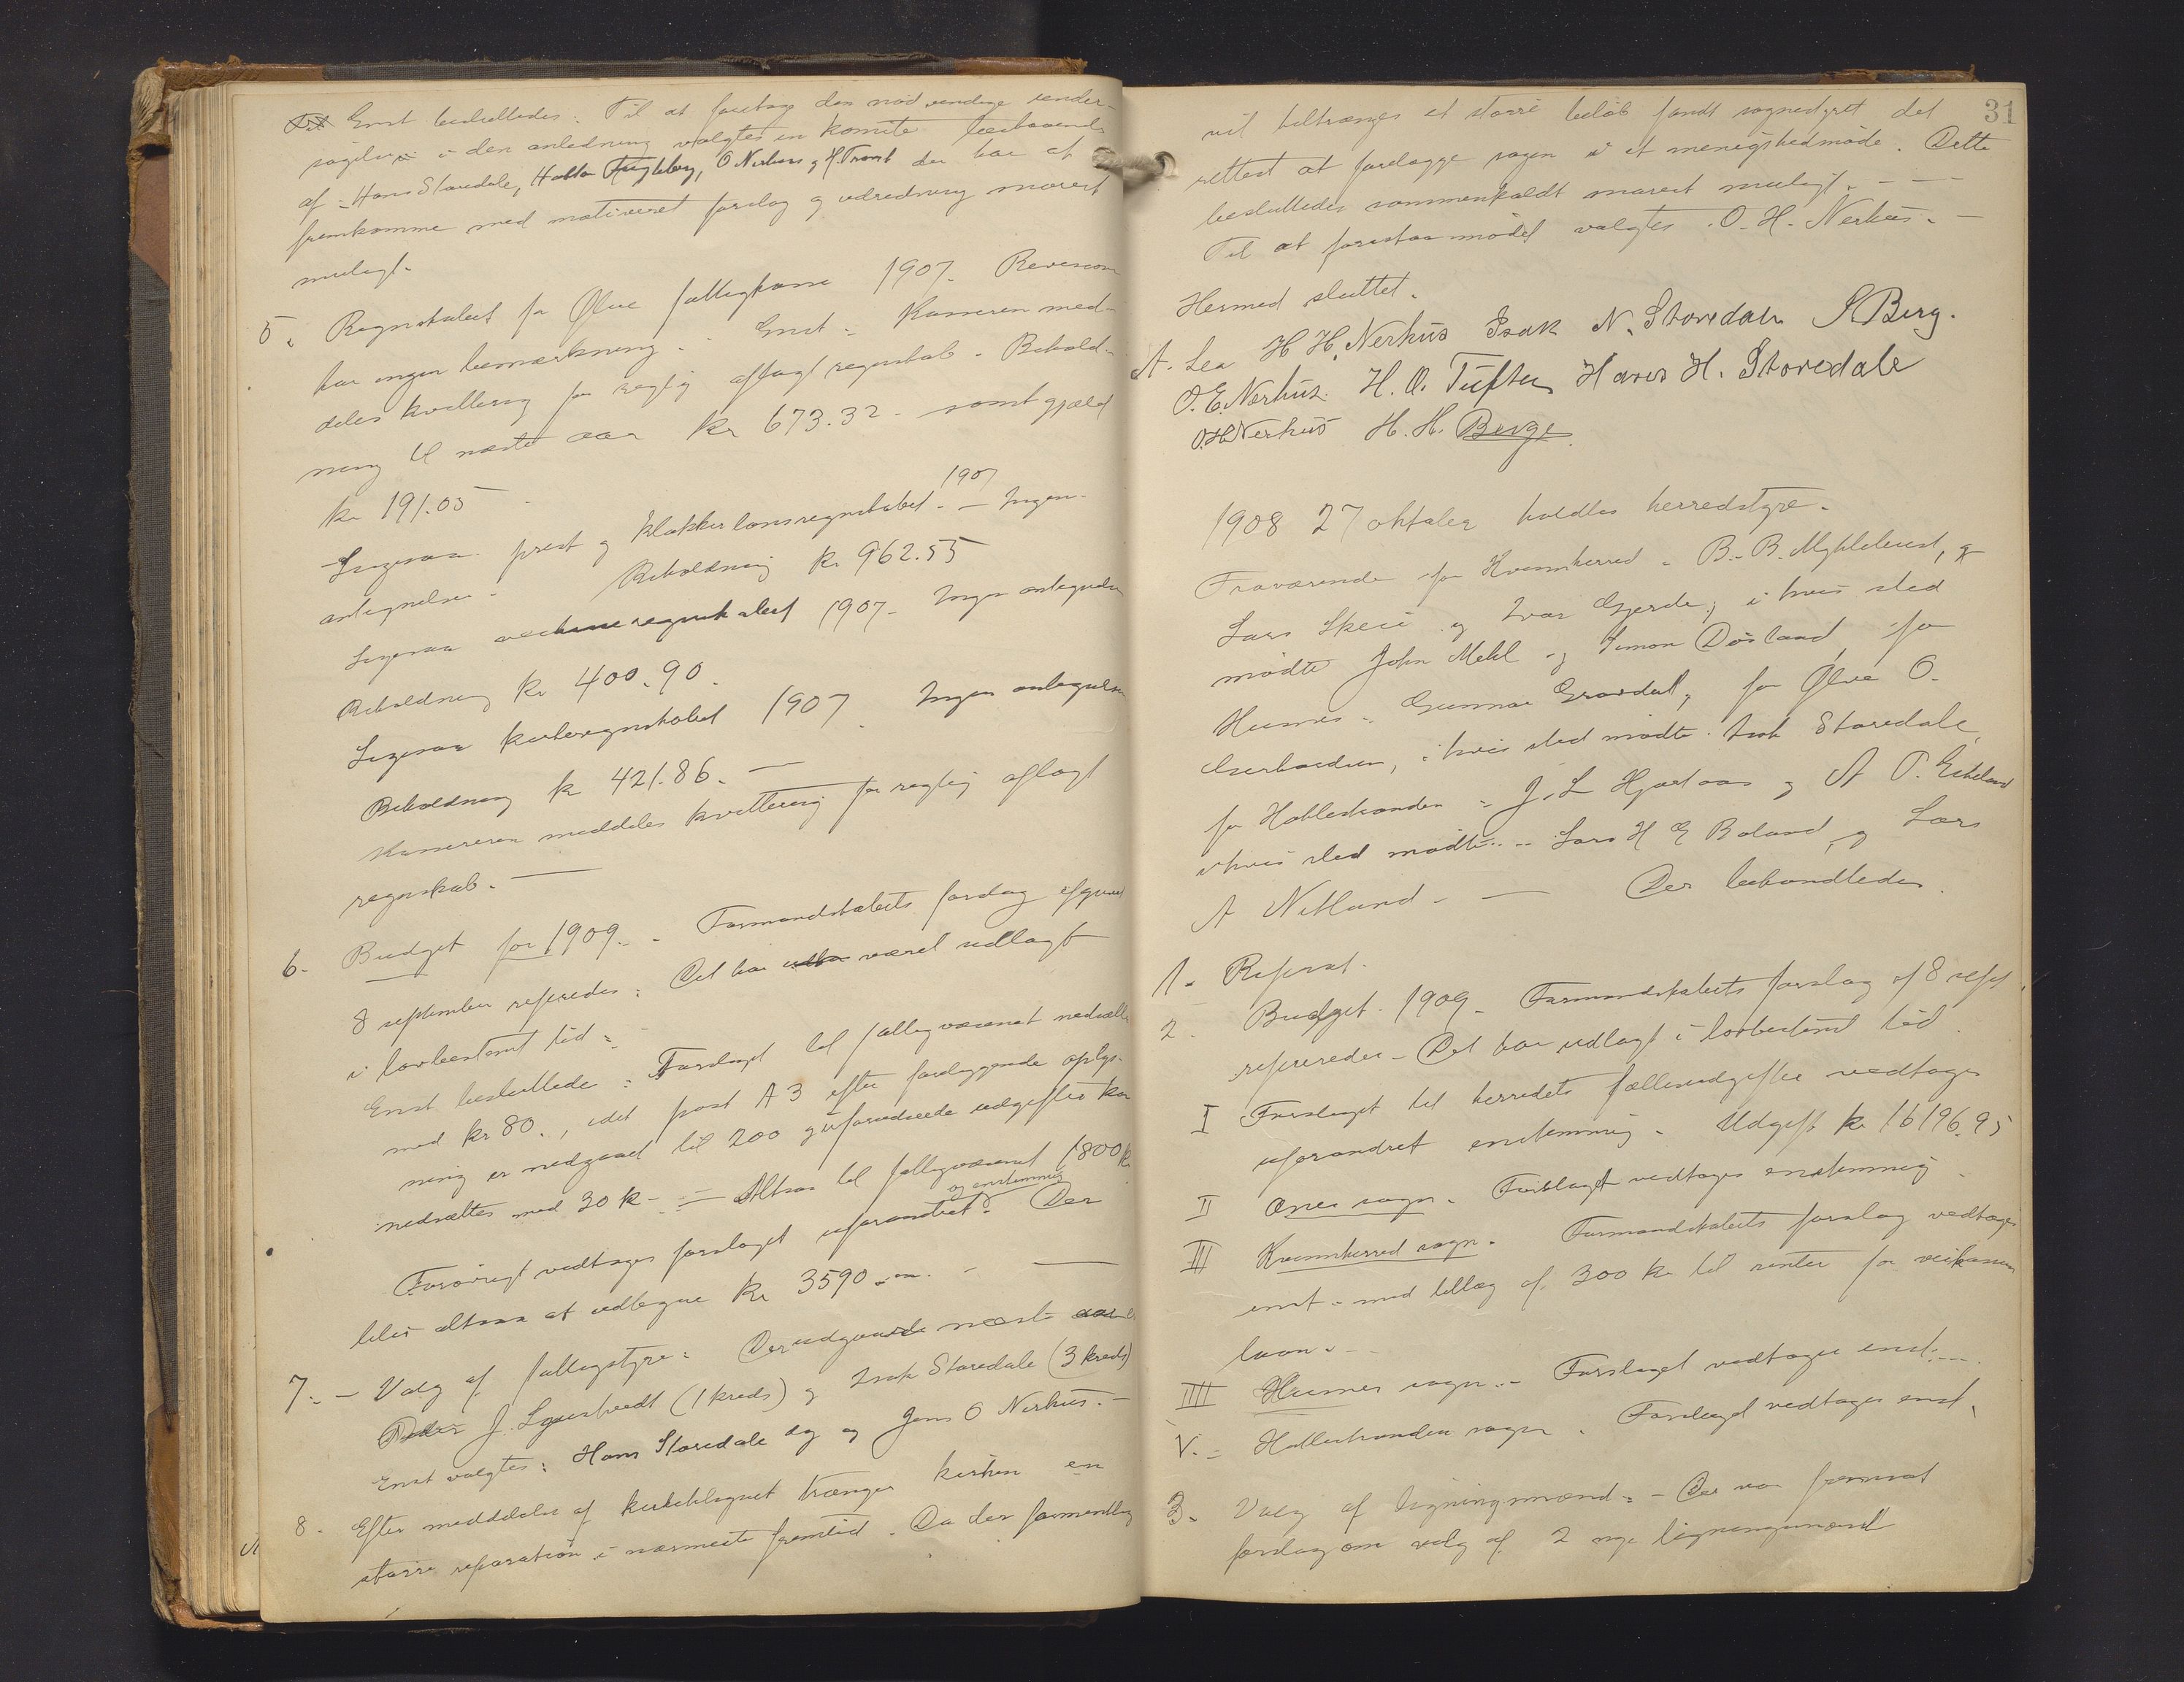 Enst besluttedes: Til at foretage den nødvendige under-
søgelse i den anledning valgtes en komite bestaaende
af: Hans Storedale, O Nerhus og H. Tveit der har at
fremkomme med motiveret forslag og udredning snarest
muligt.
5. Regnskabet for Ølve fattigkasse 1907. Revisionen
har ingen bemærkning. Enst: Kassereren med-
deles kvittering for rigtig aflagt regnskab. Behold-
ning til næste aar kr 673.32 samt gjæld
kr 191.05
1907
Ligesaa prest og klokkerlønsregnskabet. - Ingen
antegnelser. Beholdning kr 962.55
Ligesaa regnskabet 1907. Ingen antegnelse
Beholdning kr 400.90.
Ligesaa kirkeregnskabet 1907. Ingen antegnelse
Beholdning kr 421.86. —
Kassereren meddeles kvittering for rigtig aflagt
regnskab. —
6. Budget for 1909. Formandskabets forslag af
8 september refereredes: Det har været udlagt
i lovbestemt tid:
Enst besluttede: Forslaget til fattigvæsenet nedsættes
med kr 80., idet post A 3 efter foreliggende oplys-
ning er nedgaaet til 200 og uforudseede udgifter kan
nedsættes med 30 kr - Altsaa til fattigvæsenet 1800 kr
og enstemmig
Forøvrigt vedtages forslaget uforandret. Der
blir altsaa at udligne kr 3590
7. - Valg af fattigstyre: Der udgaar næste aar
Peder J. (1 kreds) og Isak Storedale (3 kreds)
Enst valgtes: Hans Storedale og Jens O Nerhus. -
8. Efter meddelelse af kirketilsynet trænger kirken en
større reparation i nærmeste fremtid. Da der formentlig
31
vil tiltrænges et større beløb fandt sognestyret det
rettest at forelægge sagen i et menighedsmøde. Dette
besluttedes sammenkaldt snarest muligt. —
Til at forestaa mødet valgtes O. H. Nerhus. -
Hermed sluttet.
A. Lea H H. Nerhus Isak N. Storedale S Berg.
O. E. Nerhus. H. O. Tuften Hans H. Storedale
O.H. Nerhus H. H. Berge
1908 27 oktober holdtes herredstyre.
Fraværende for Kvinnherred - B. B. Myklebust,
Lars Skeie og Ivar Gjerde, i hvis sted
mødte John Mehl og Simon Døsland, for
Husnes - Gunnar Gravdal, for Ølve O.
i hvis sted mødte Isak Storedale,
for Hatlestranden - J. L Hjortaas og A P. Eikeland
i hvis sted mødte - Lars H E Boland og Lars
A Netland - — Der behandledes
1. Referat.
2. Budget 1909 - Formandskabets forslag af 8 sept.
refereredes - Det har udlagt i lovbestemt tid.
I Forslaget til herredets fællesudgifter vedtages
uforandret enstemmig. Udgift kr 16196.95
II Ænes sogn. Forslaget vedtages enstemmig.
III Kvinnherred sogn. Formandskabets forslag vedtages
enst - med tillæg af 300 kr til renter for
laan. -
IIII Husnes sogn. - Forslaget vedtages enst. -
V. - Hatlestranden sogn. Forslaget vedtages enst.
3. Valg af ligningsmænd: - Der var fremsat
forslag om valg af 2 nye ligningsmænd